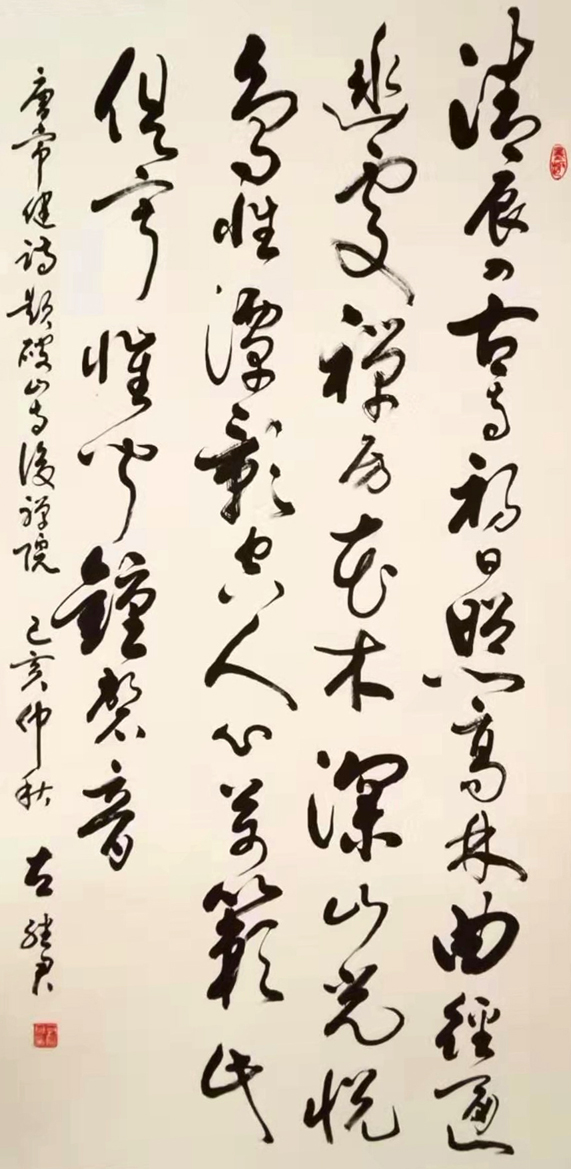 清辰入古寺初日照高林曲徑通
幽處禪房花木深山光悅
鳥性潭影空人心萬籟此
俱寂惟聞鐘磬音
唐常健詩題破山寺後禪院 己亥仲秋